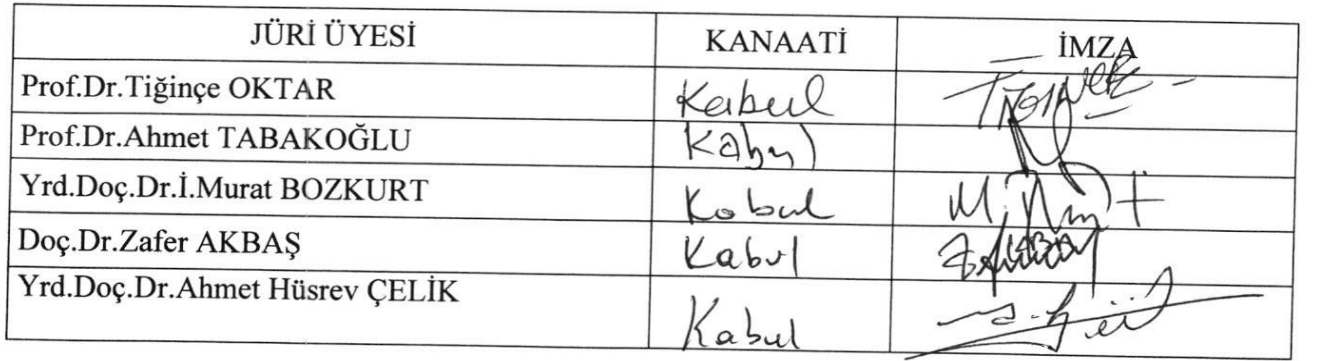 JÜRİ ÜYESİ KANAATİ İMZA
Prof.Dr.Tiğinçe OKTAR Kabul
Prof.Dr.Ahmet TABAKOĞLU Kabul
Yrd.Doç.Dr.İ.Murat BOZKURT Kabul
Doç.Dr.Zafer AKBAŞ Kabul
Yrd.Doç.Dr.Ahmet Hüsrev ÇELİK Kabul